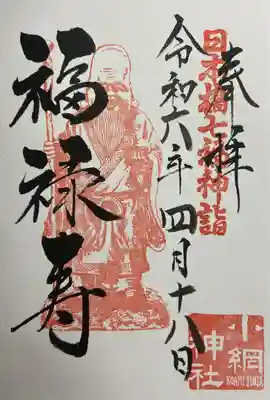 奉拝
日本橋七福神詣
令和六年四月十八日
福禄寿
小網
神社
KOAMI JINJA